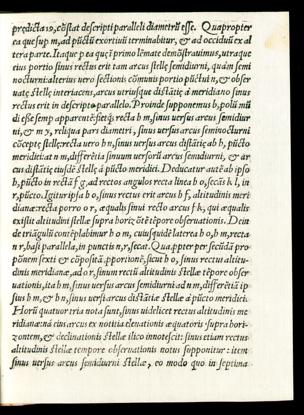 prædicta 19, cõstat descripti paralleli diametrũ esse. Quapropter
ea que sup m, ad pũctũ exortiuũ terminabitur, & ad occiduũ ex al
tera parte. Itaque p ea quę i primo lẽmate demõstrauimus, utraque
eius portio sinus rectus erit tam arcus stellę semidiurni, quàm semi
nocturni: alterius uero sectionis cõmunis portio pũctũ n, & obser
uatę stellę interiacens, arcus utriusque distãtię à meridiano sinus
rectus erit in descripto parallelo. Proinde supponemus b, polũ mũ
di esse semp apparentẽ: sitq́; recta b m, sinus uersus arcus semidiur
ni, & m y, reliqua pars diametri, sinus uersus arcus seminocturni
cõceptę stellę: recta uero h n, sinus uersus arcus distãtię ab h, pũcto
meridiei: at n m, differẽtia sinuum uersorũ arcus semidiurni, & ar
cus distãtię eiusdẽ stellę à pũcto meridiei. Deducatur autẽ ab ipso
h, pũcto in rectã f g, ad rectos angulos recta linea h o, secãs k l, in
r, pũcto. Igitur ipsa h o, sinus rectus erit arcus h f, altitudinis meri
dianæ: recta porro o r, æqualis sinui recto arcus f k, qui æqualis
existit altitudini stellæ supra horizõtẽ tẽpore obseruationis. Dein
de triãgulũ cõtẽplabimur h o m, cuiusque duo latera h o, h m, recta
n r, basi parallela, in punctis n, r, secat. Quappter per secũdã pro
põnem sexti & cõpositã.pportionẽ, sicut h o, sinus rectus altitu
dinis meridianæ, ad o r, sinum rectũ altitudinis stellæ tẽpore obser
uationis, ita h m, sinus uersus arcus semidiurni ad n m, differẽtiã ip
sius h m, & h n, sinus uersi arcus distãtiæ stellæ à pũcto meridiei.
Horũ quatuor tria nota sunt, sinus uidelicet rectus altitudinis me
ridianæ: nã eius arcus ex notitia eleuationis æquatoris supra hori-
zontem, & declinationis stellæ ilico innotescit: sinus etiam rectus
altitudinis stellæ tempore obseruationis notus supponitur: item
sinus uersus arcus semidiurni stellæ, eo modo quo in septima